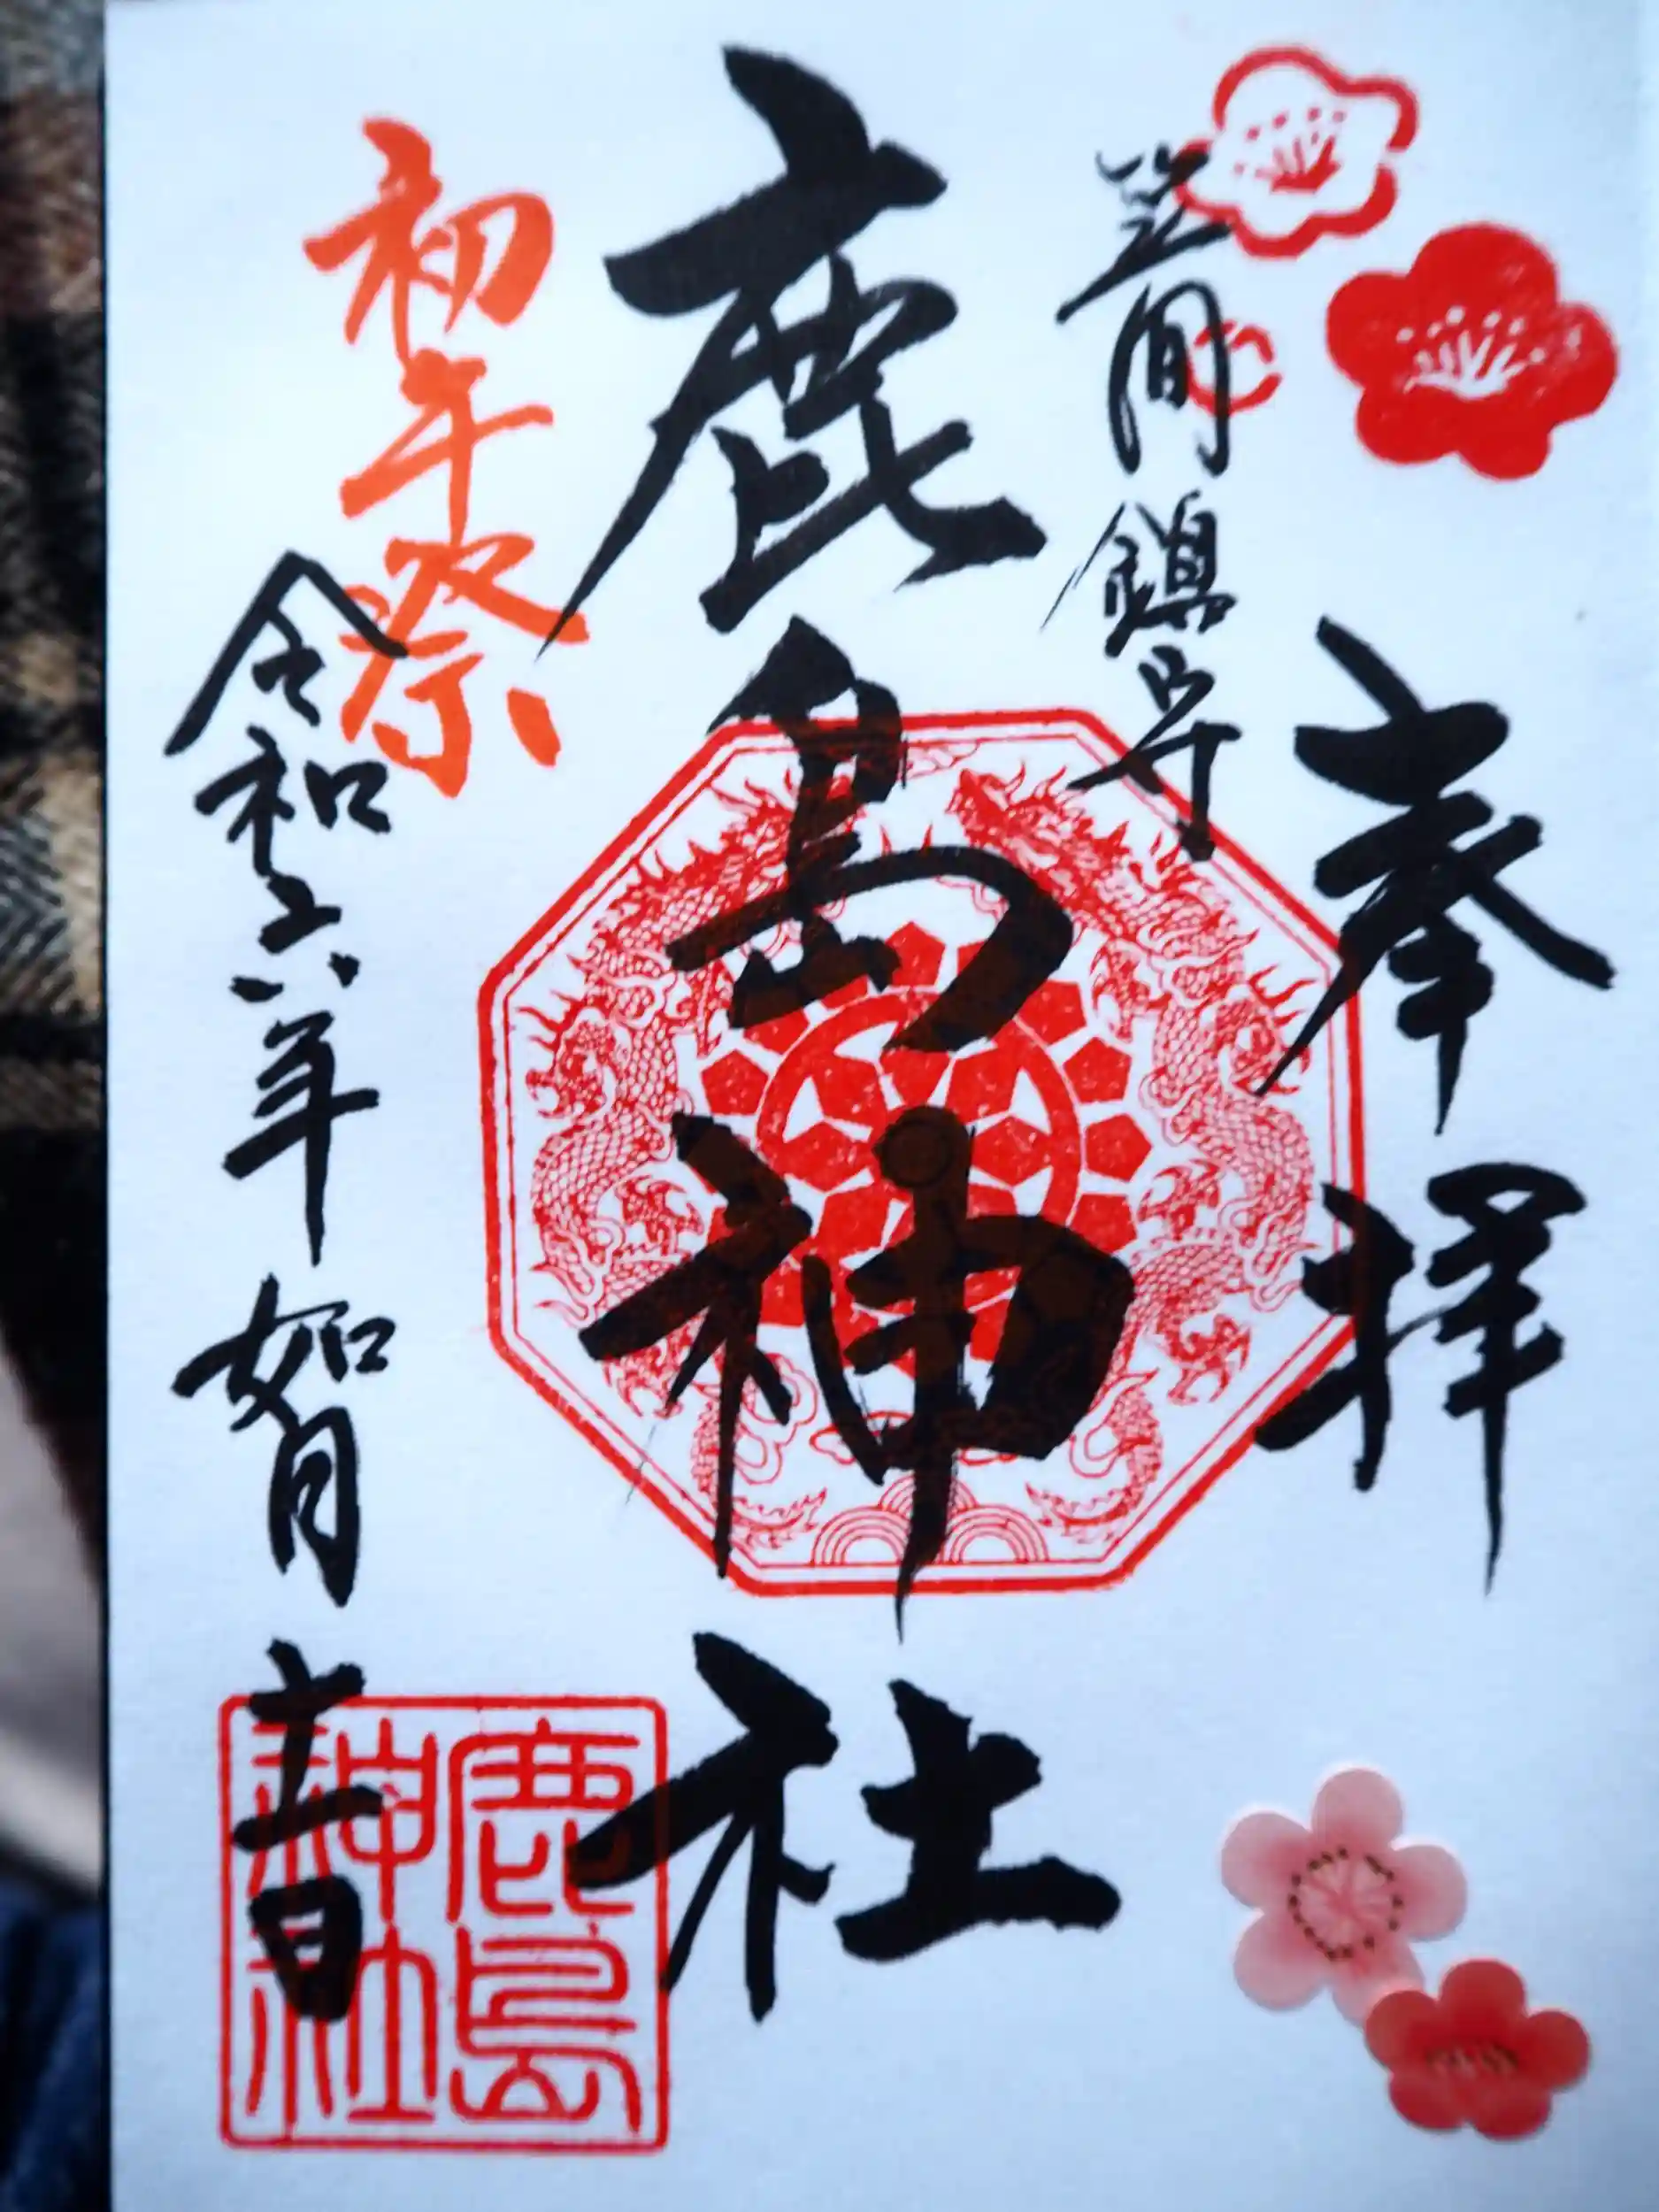 奉拝
笠間鎮守
鹿島神社
初午祭
令和六年如月十二日
鹿島
神社